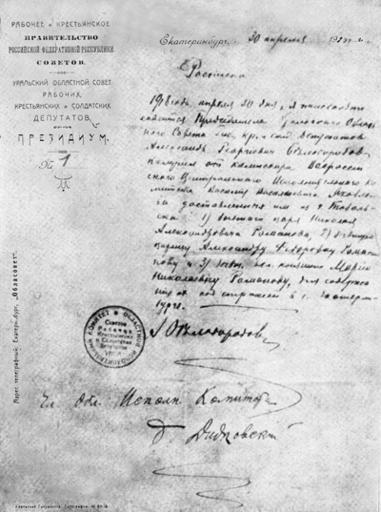 РАБОЧЕЕ и КРЕСТЬЯНСКОЕ
ПРАВИТЕЛЬСТВО
РОССИЙСКОЙ ФЕДЕРАТИВНОЙ РЕСПУБЛИКИ
СОВЕТОВ.
УРАЛЬСКИЙ ОБЛАСТНОЙ СОВЕТ
РАБОЧИХ,
КРЕСТЬЯНСКИХ и СОЛДАТСКИХ
ДЕПУТАТОВ.
ПРЕЗИДИУМ.
№ 1
Екатеринбург, 30 апреля
Расписка
1918 года апреля 30 дня, я
Председатель Уральского Област
ного Совета
Александр Георгиевич Белобородов
получил от комиссара Всероссий
ского Центрального Исполнительного Ко
митета Василия Васильевича Яковле
ва доставленных им из г. Тоболь
ска: 1) бывшего царя Николая
Александровича Романова, 2) бывшую
царицу Александру Федоровну Рома
нову и 3) Марию
Николаевну Романову, для содержа
ния их под стражей в г. Екатерин
бурге.
А Белобородов
Чл. Обл. Исполн. Комитета
Б. Дидковский
Адрес телеграфный: Екатеринбург, „Облсовет“.